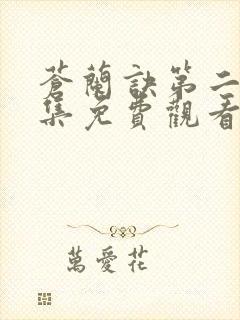 蒼蘭訣第二
集免費觀看
萬愛花